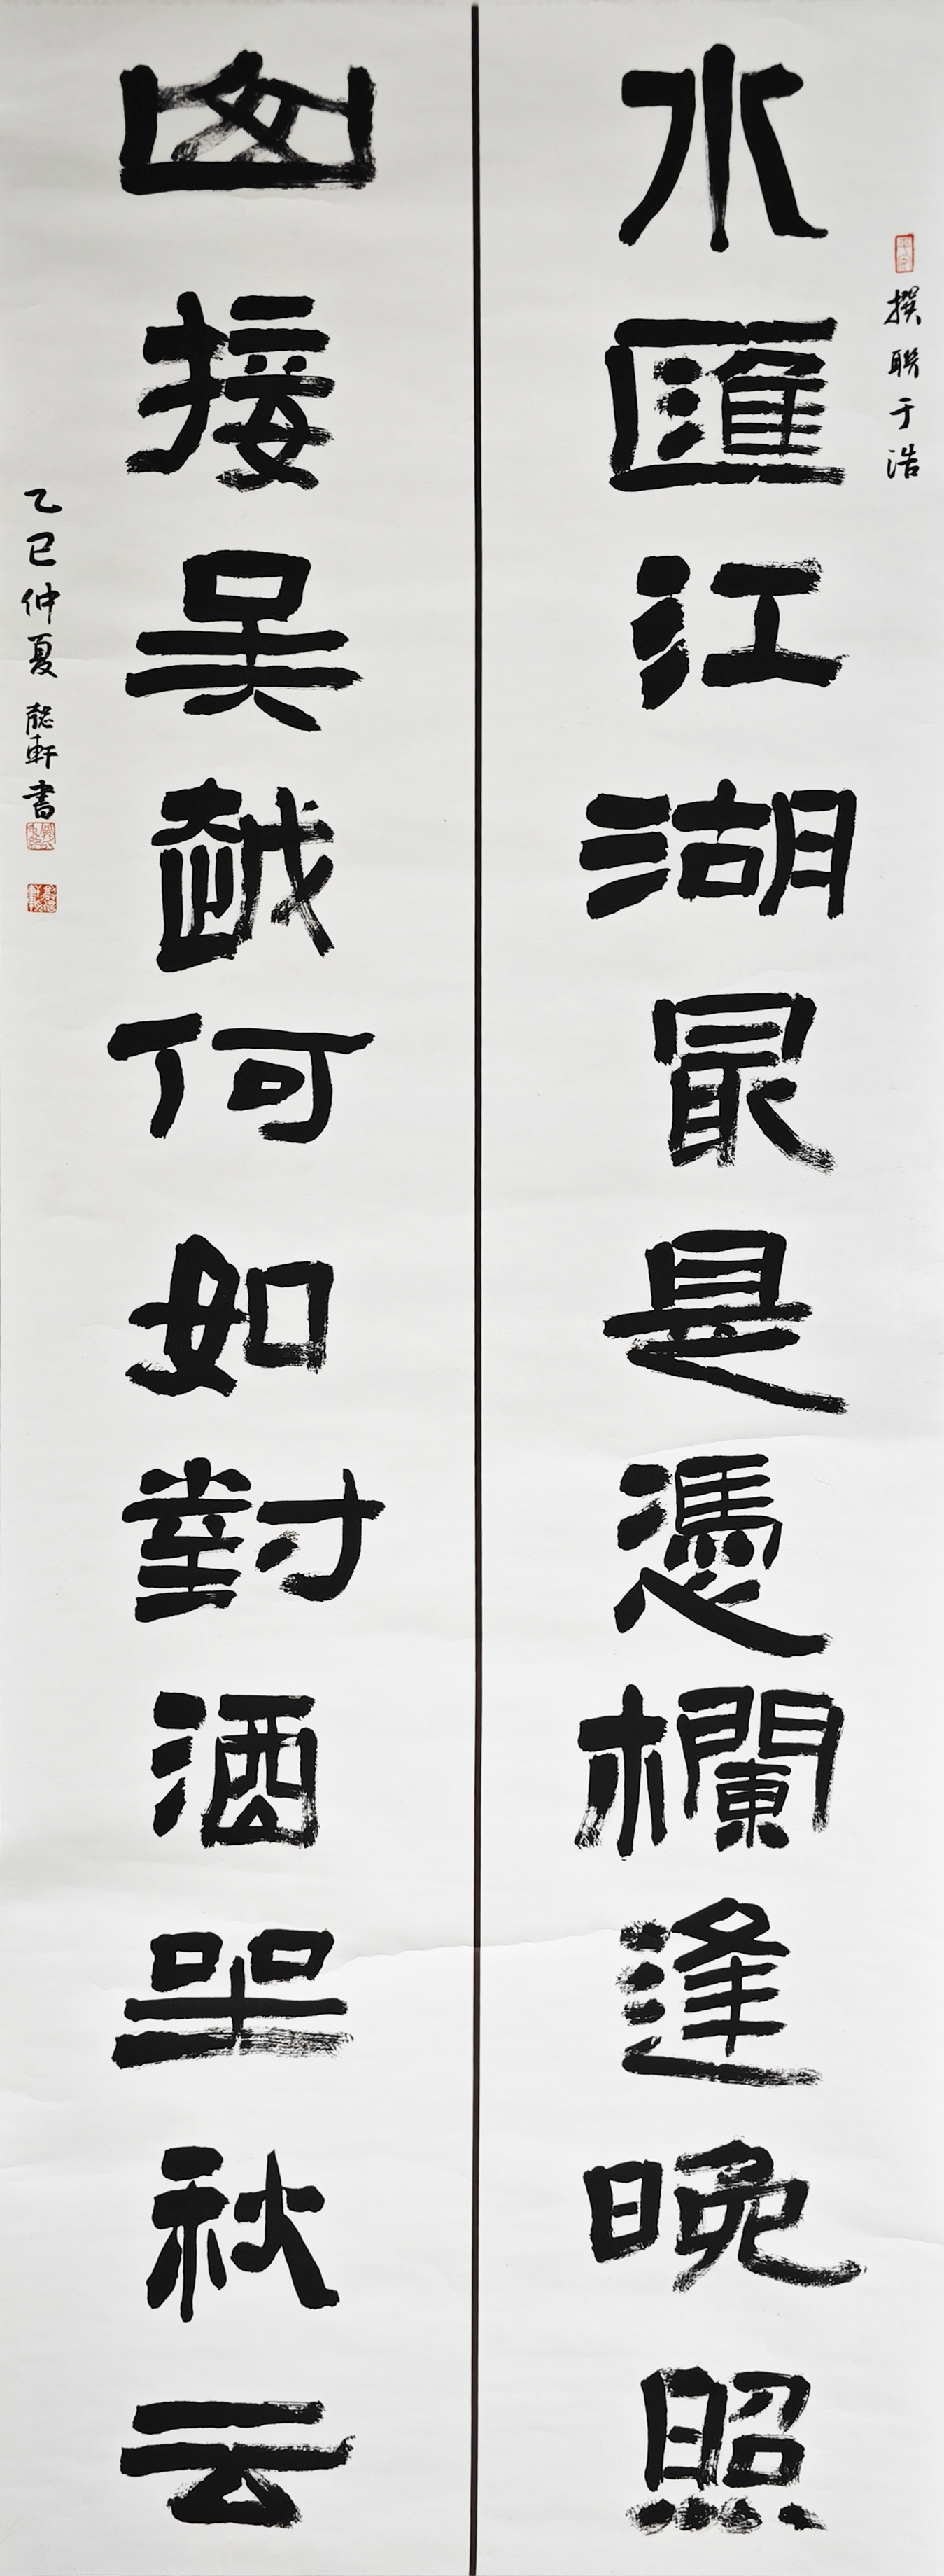 撰聯于浩
水匯江湖最是憑欄逢晚照
山接吴越何如對酒坐秋云
乙巳仲夏 軒書